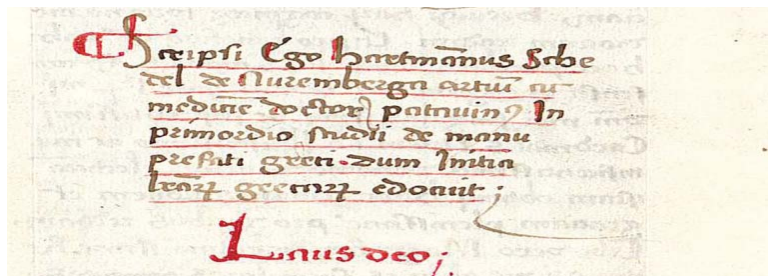 Scripsi Ego hartmãnus Sche
del de Nuremberga artiũ ac
medicie doctor patauinꝰ In
primordio studii de manu
prefati greci. dum Initia
lr̃aꝝ grecaꝝ edocuit;
Laus deo;